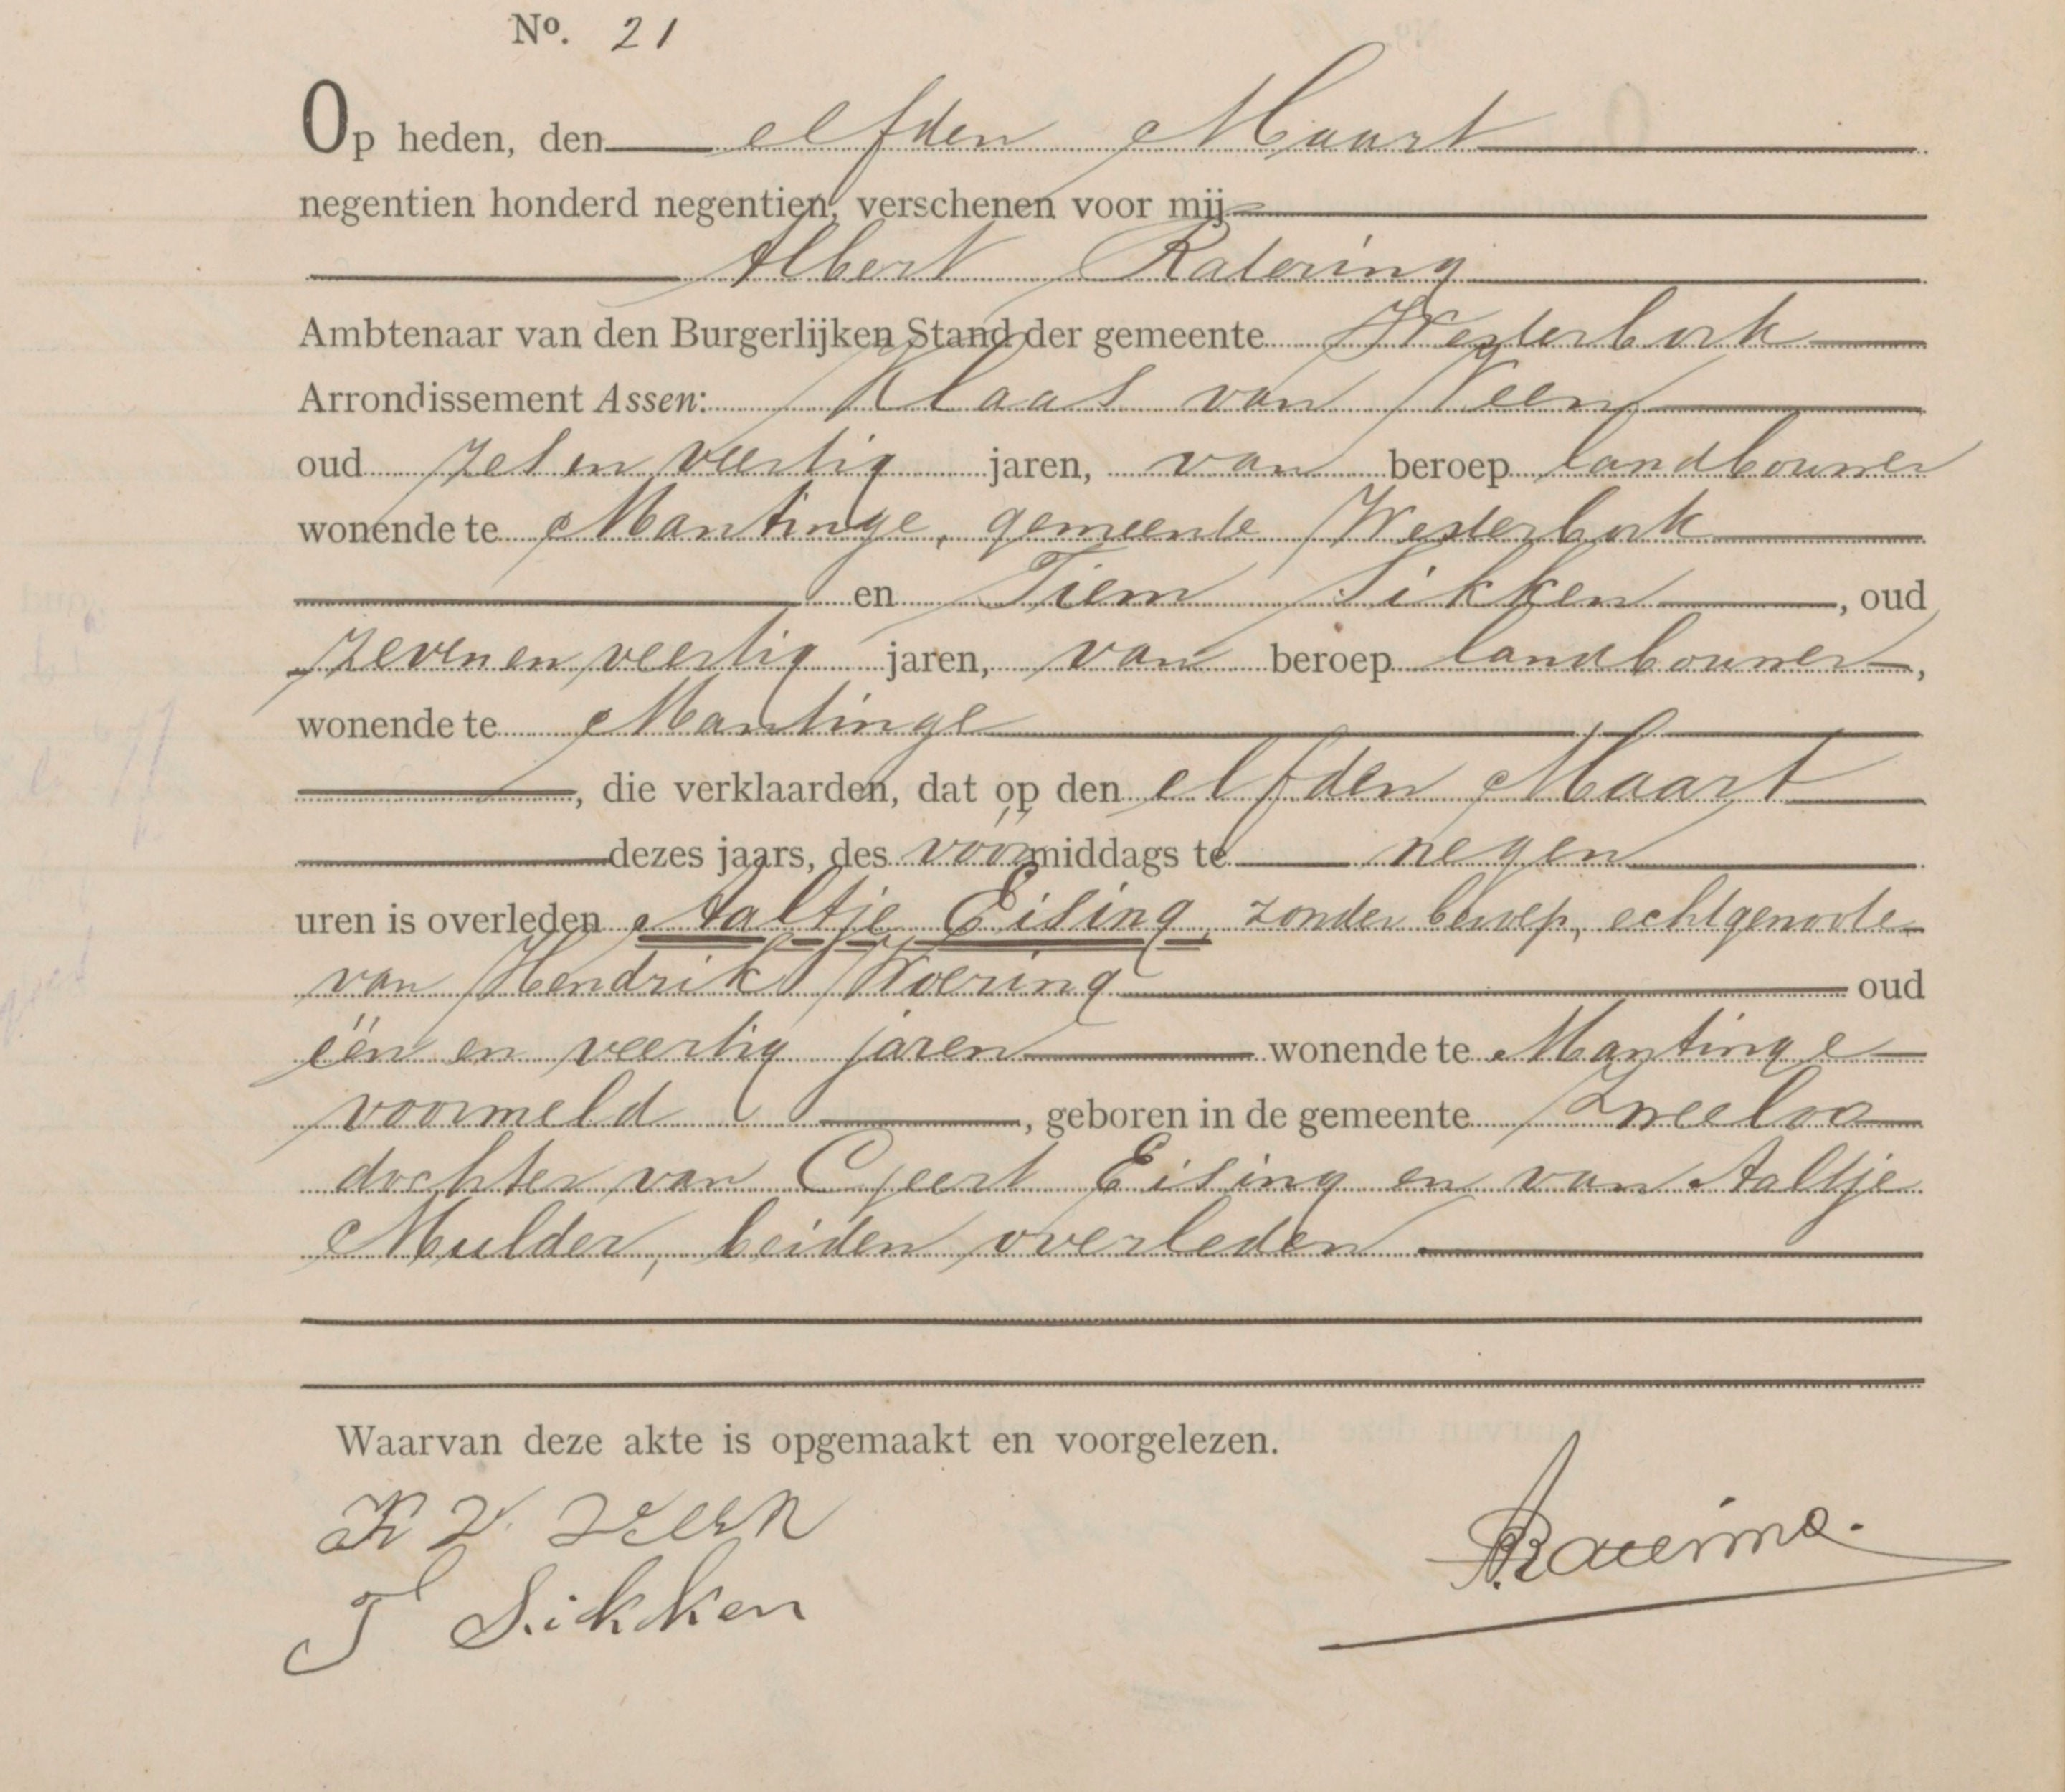 No. 21
Op heden, den elfden Maart
negentien honderd negentien, verschenen voor mij
Albert Ratering
Ambtenaar van den Burgerlijken Stand der gemeente Westerbork
Arrondissement Assen: Klaas van Veen
oud zes en veertig jaren, van beroep landbouwer
wonende te Mantinge, gemeente Westerbork
en Tiem Sikken, oud
zeven en veertig jaren, van beroep landbouwer,
wonende te Mantinge
, die verklaarden, dat op den elfden Maart
dezes jaars, des voormiddags te negen
uren is overleden Aaltje Eising, zonder beroep, echtgenoote
van Hendrik Woering oud
één en veertig jaren wonende te Mantinge
voormeld, geboren in de gemeente Zweeloo
dochter van Geert Eising en van Aaltje
Mulder, beiden overleden.
Waarvan deze akte is opgemaakt en voorgelezen.
K v. Veen
T Sikken